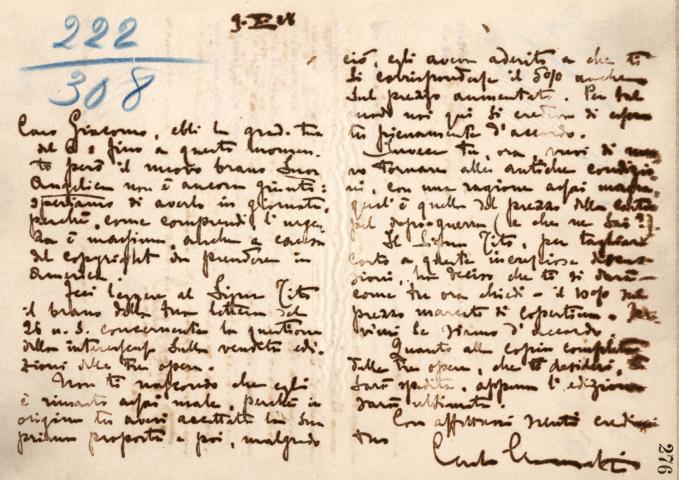 222
308
9. X 18
Caro Giacomo, ebbi la grad. tua
del 6 e fino a questo momen-
to però il nuovo brano Suor
Angelica non è ancora giunto:
speriamo di averlo in giornata,
perchè, come comprendi, l'urgen-
za è massima, anche a causa
del copyright da prendere in
America.
Feci leggere al Signor Tito
il brano della tua lettera del
26 u. s. concernente la questione
della interessenza sulla vendita edi-
zioni delle tre opere.
Non ti nascondo che egli
è rimasto assai male, perchè in
origine tu avevi accettato la sua
prima proposta e poi, malgrado
ciò, egli aveva aderito a che ti
si corrispondesse il % anche
sul prezzo aumentato. Per tal
modo noi qui si credeva di essere
tu pienamente d'accordo.
Invece tu, ora, vuoi di nuo-
vo tornare alle antiche condizio-
ni, con una ragione assai magra,
qual'è quella del prezzo della carta
pel dopo-guerra (e che ne sai?).
Il Signor Tito, per tagliare
corto a queste incresciose discus-
sioni, ha deciso che ti si darà
come tu ora chiedi - il 10% sul
prezzo marcato di copertina.
se siamo d'accordo.
Quanto alle copie complete
delle tre opere, che tu desideri, ti
sarà spedita, appena l'edizione
sarà ultimata.
Con affettuosi saluti credimi
tuo
276